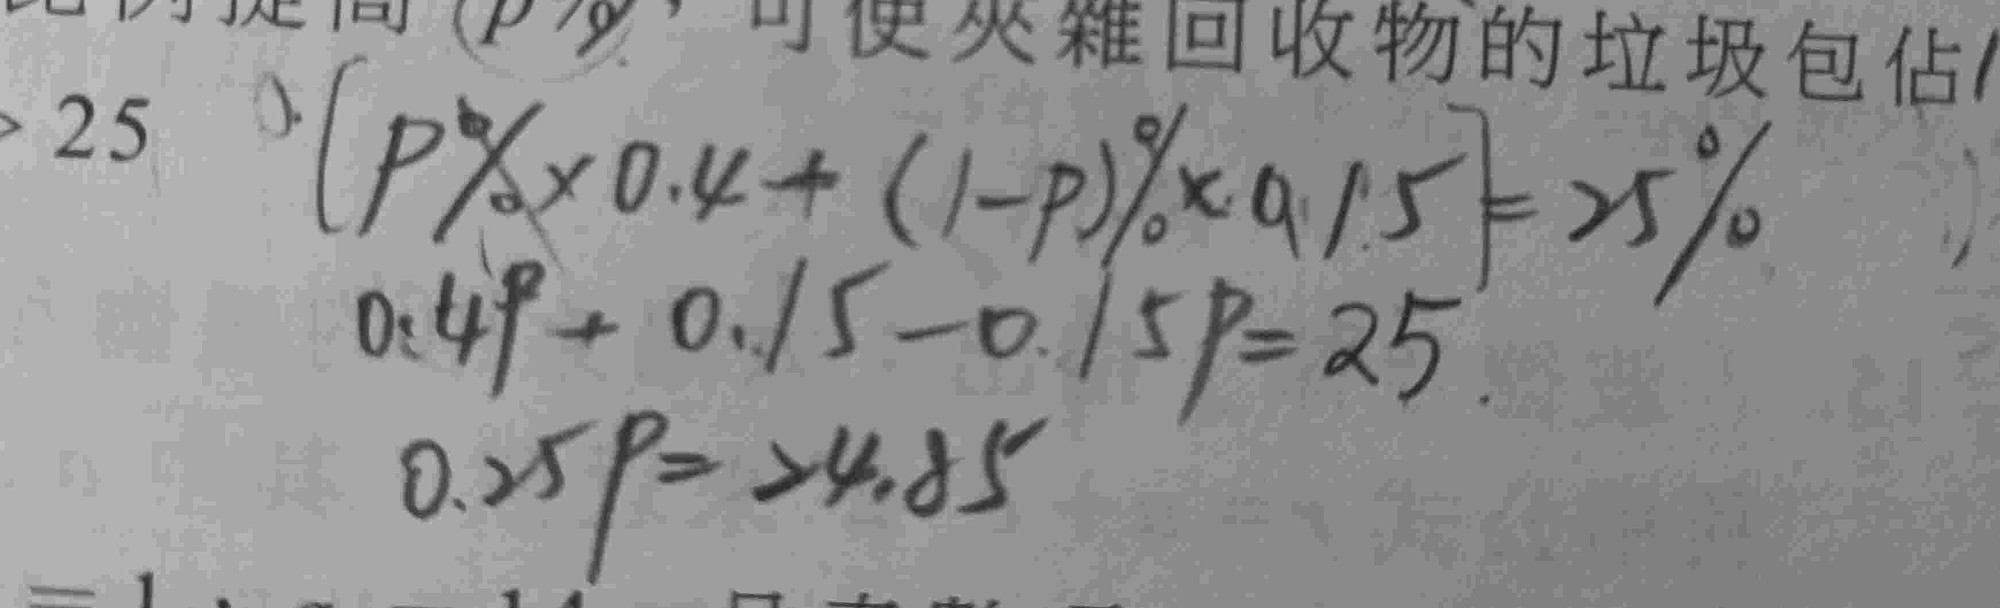 比例提高 (p%, 可使夾雜回收物的垃圾包佔
> 25 [p% × 0.4 + (1-p)% × 0.15] = 25%
0.4p + 0.15 - 0.15p = 25
0.25p = 24.85
= 1,